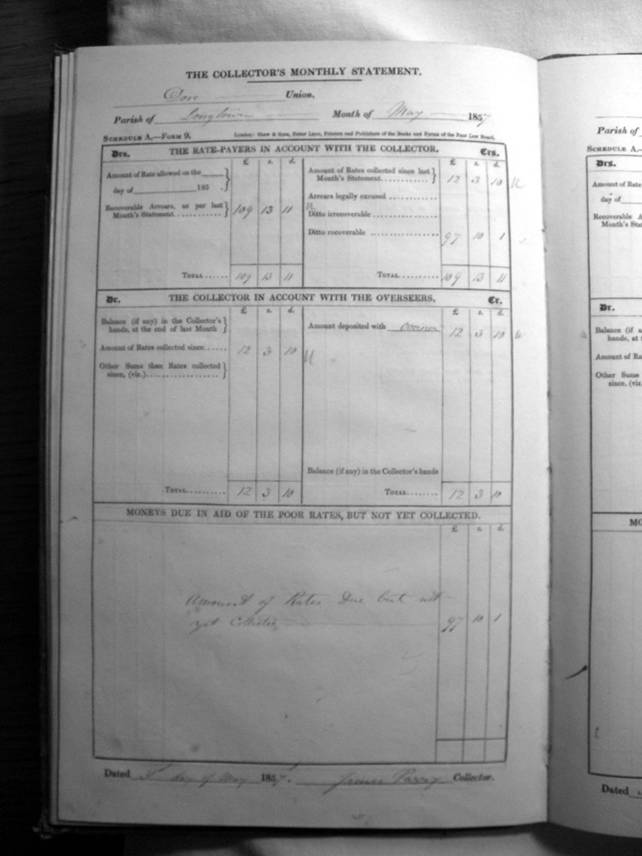 THE COLLECTOR'S MONTHLY STATEMENT.
Dore Union.
Parish of Longtown Month of May 1857
SCHEDULE A.—FORM 9. London: Shaw & Sons, Fetter Lane, Printers and Publishers of the Books and Forms of the Poor Law Board.
Drs. THE RATE-PAYERS IN ACCOUNT WITH THE COLLECTOR. Crs.
£ s. d. £ s. d.
Amount of Rate allowed on the
day of 185
Amount of Rates collected since last
Month's Statement 12 3 10
Arrears legally excused
Recoverable Arrears, as per last
Month's Statement 109 13 11
Ditto irrecoverable
Ditto recoverable 97 10 1
TOTAL 109 13 11 TOTAL 109 13 11
Dr. THE COLLECTOR IN ACCOUNT WITH THE OVERSEERS. Cr.
£ s. d. £ s. d.
Balance (if any) in the Collector's
hands, at the end of last Month
Amount deposited with 12 3 10
Amount of Rates collected since 12 3 10
Other Sums than Rates collected
since, (viz.)
Balance (if any) in the Collector's hands
TOTAL 12 3 10 TOTAL 12 3 10
MONEYS DUE IN AID OF THE POOR RATES, BUT NOT YET COLLECTED.
£ s. d.
Amount of Rates due but not
yet Collected 97 10 1
Dated day of May 1857. James Parry Collector.
Parish of
SCHEDULE A.—
Drs.
Amount of Rate
day of
Recoverable A
Month's Sta
Dr.
Balance (if a
hands, at t
Amount of Ra
Other Sums
since, (viz.
MO
Dated